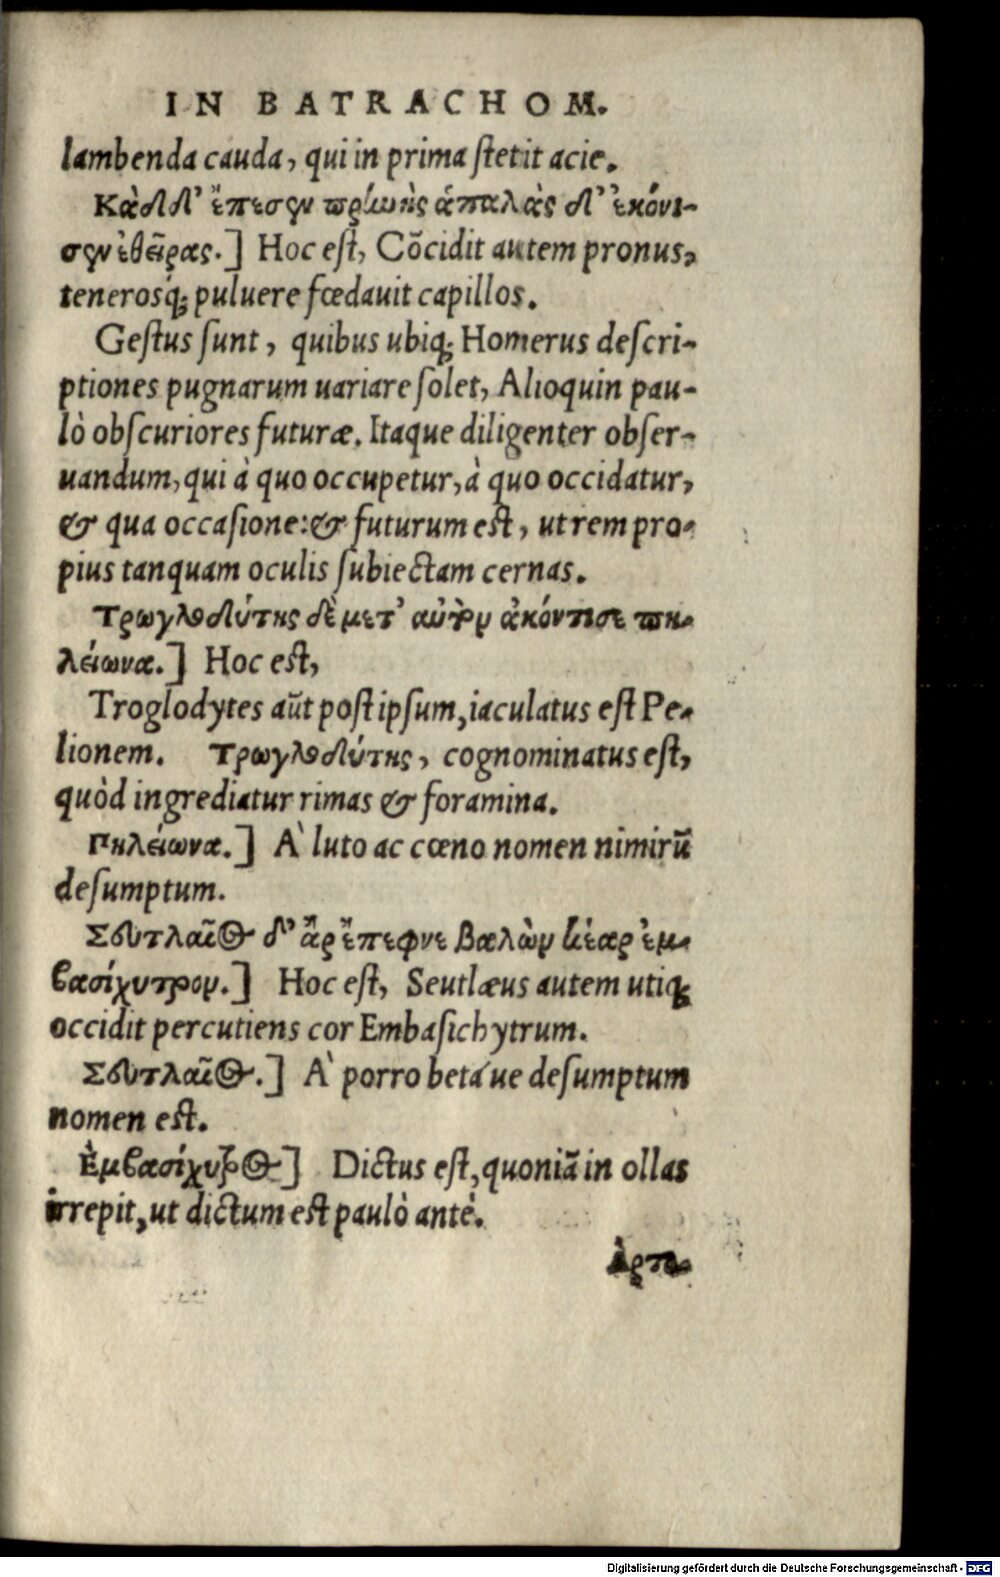 IN BATRACHOM.
lambenda cauda, qui in prima stetit acie.
Κὰδδ' ἔπεσεν πρἰωὴς ἁπαλὰς δ' ἐκόνι-
σεν ἐθείρας.] Hoc est, Cōcidit autem pronus,
tenerosq́; puluere fœdauit capillos.
Gestus sunt, quibus ubiq; Homerus descri-
ptiones pugnarum uariare solet, Alioquin pau-
lò obscuriores futuræ. Itaque diligenter obser-
uandum, qui à quo occupetur, à quo occidatur,
& qua occasione: & futurum est, ut rem pro-
pius tanquam oculis subiectam cernas.
Τρωγλοδύτης δὲ μετ' αὐτὸν ἀκόντισε πη-
λείωνα.] Hoc est,
Troglodytes aūt post ipsum, iaculatus est Pe-
lionem. Τρωγλοδύτης, cognominatus est,
quòd ingrediatur rimas & foramina.
Πηλείωνα.] À luto ac cœno nomen nimirū
desumptum.
Σευτλαῖος δ' ἂρ ἔπεφνε βαλὼν κέαρ ἐμ-
βασίχυτρον.] Hoc est, Seutlæus autem utiq;
occidit percutiens cor Embasichytrum.
Σευτλαῖος.] À porro betáue desumptum
nomen est.
Ἐμβασίχυτρος] Dictus est, quoniā in ollas
irrepit, ut dictum est paulò antè.
Ἀρτο-
Digitalisierung gefördert durch die Deutsche Forschungsgemeinschaft - DFG